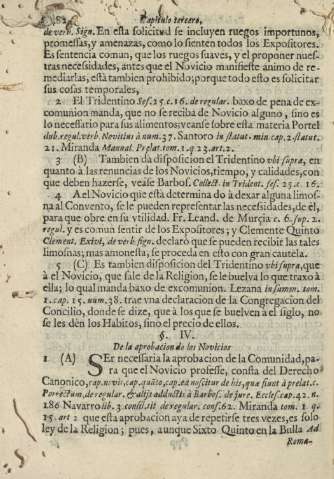 Capitulo tercero,
de verb. Sign. En esta solicitud se incluyen ruegos importunos,
promessas, y amenazas, como lo sienten todos los Expositores.
Es sentencia comun, que los ruegos suaves, y el proponer nues-
tras necessidades, antes que el Novicio manifieste animo de re-
mediarlas, està tambien prohibido; porque todo esto es solicitar
sus cosas temporales,
2 El Tridentino Ses. 25. c. 16. de regular. baxo de pena de ex-
comunion manda, que no se reciba de Novicio alguno, sino es
lo necessario para sus alimentos: veanse sobre esta materia Portel
dub. regul. verb. Novitius à num. 37. Santoro in statut. min. cap. 2. statut.
21. Miranda Manual. Prælat. tom. 1. q 23. art. 2.
3 (B) Tambien da disposicion el Tridentino vbi supra, en
quanto à las renuncias de los Novicios, tiempo, y calidades, con
que deben hazerse, vease Barbos. Collect. in Trident. ses. 25. c. 16.
4 A el Novicio que està determinado à dexar alguna limos-
na al Convento, se le pueden representar las necessidades, de èl,
para que obre en su vtilidad. Fr. Leand. de Murcia c. 6. sup. 2.
regul. y es comun sentir de los Expositores; y Clemente Quinto
Clement. Exivi, de verb. sign. declarò que se pueden recibir las tales
limosnas; mas amonesta, se proceda en esto con gran cautela.
5 (C) Es tambien disposicion del Tridentino vbi supra, que
à el Novicio, que sale de la Religion, se le buelva lo que traxo à
ella; lo qual manda baxo de excomunion. Lezana in summ. tom.
1. cap. 15. num. 38. trae vna declaracion de la Congregacion del
Concilio, donde se dize, que à los que se buelven à el siglo, no
se les den los Habitos, sino el precio de ellos.
§. IV.
De la aprobacion de los Novicios
1 (A) SEr necessaria la aprobacion de la Comunidad, pa-
ra que el Novicio professe, consta del Derecho
Canonico, cap. novis, cap. quãto, cap. ea noscitur de his, quæ fiunt à prælat. c.
Porrectum, de regular. & alijs adductis à Barbos. de jure. Eccles. cap. 42. n.
186 Navarro lib. 3. consil. tit de regular. cons. 62. Miranda tom. 1. q.
15. art 2 que esta aprobacion aya de repetirse tres vezes, es solo
ley de la Religion; pues, aunque Sixto Quinto en la Bulla Ad
Roma-